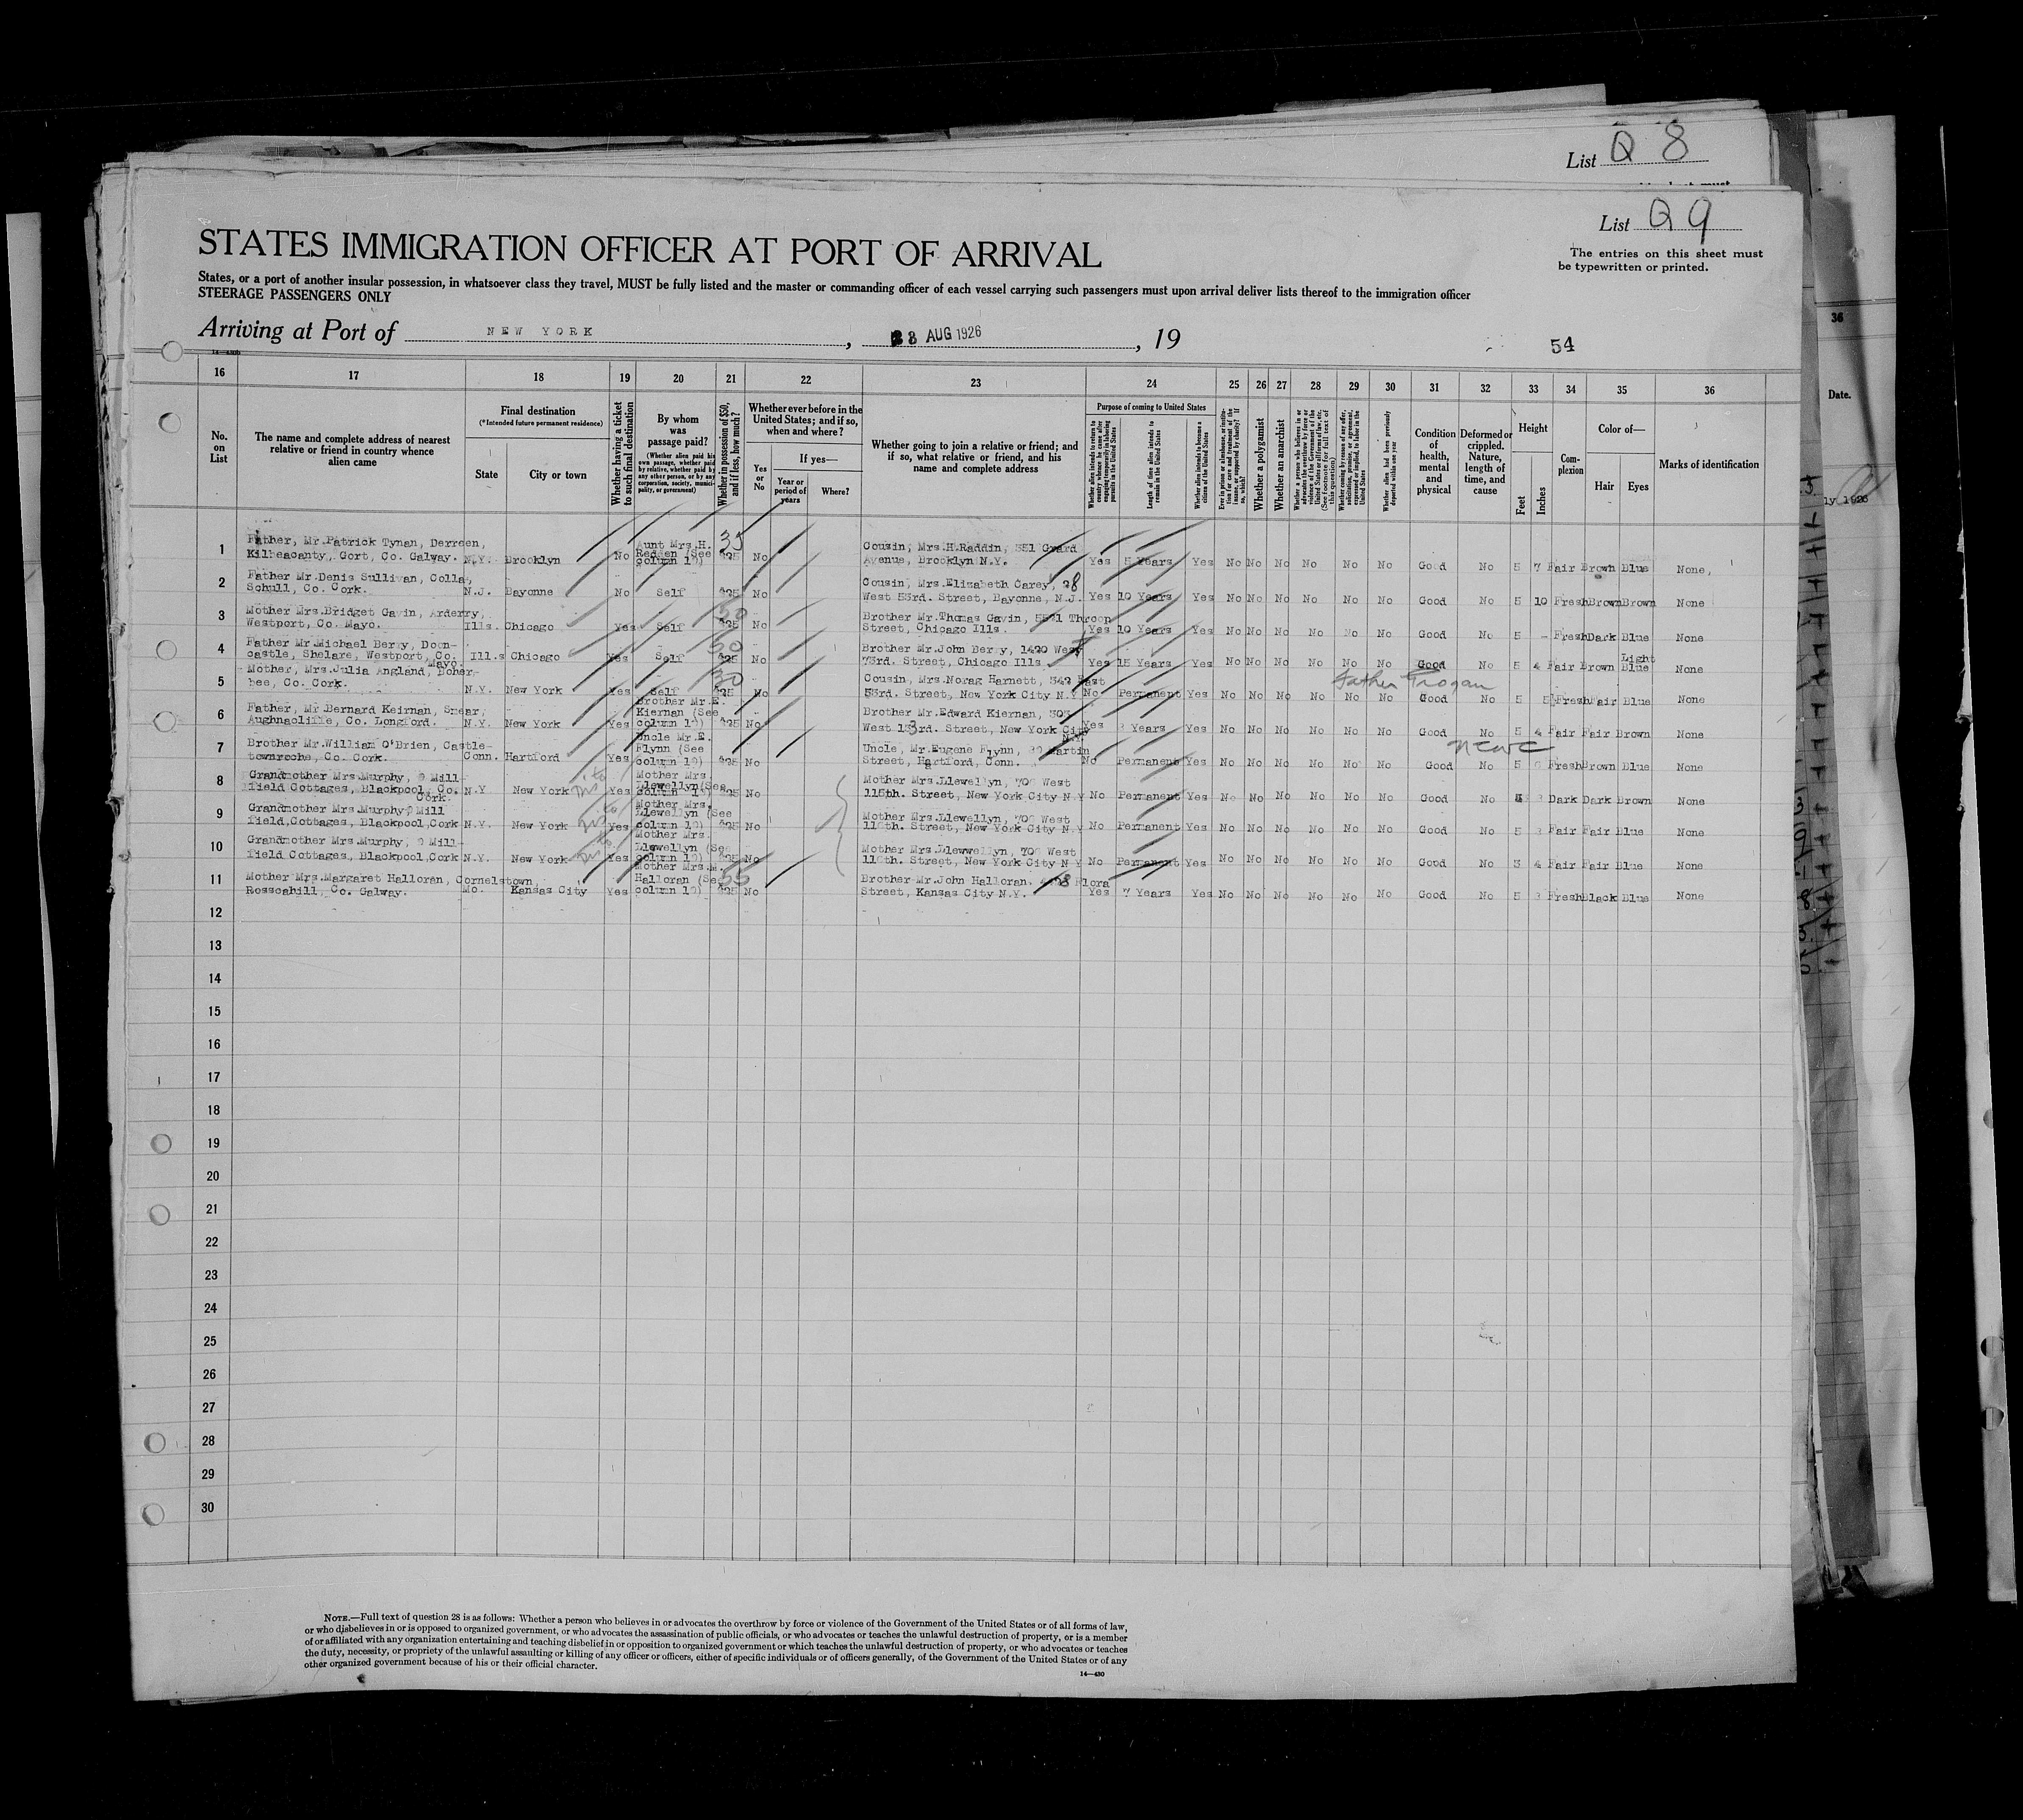 List Q 8
List Q 9
The entries on this sheet must
be typewritten or printed.
STATES IMMIGRATION OFFICER AT PORT OF ARRIVAL
States, or a port of another insular possession, in whatsoever class they travel, MUST be fully listed and the master or commanding officer of each vessel carrying such passengers must upon arrival deliver lists thereof to the immigration officer
STEERAGE PASSENGERS ONLY
Arriving at Port of NEW YORK, AUG 1926, 19
54
16 17 18 19 20 21 22 23 24 25 26 27 28 29 30 31 32 33 34 35 36
No. on List
The name and complete address of nearest
relative or friend in country whence
alien came
Final destination
(*Intended future permanent residence)
State
City or town
Whether having a ticket
to such final destination
By whom
was
passage paid?
(Whether alien paid his
own passage, whether paid
by relative, whether paid by
any other person, or by any
corporation, society, munici-
pality, or government)
Whether in possession of $50,
and if less, how much?
Whether ever before in the
United States; and if so,
when and where?
Yes
or
No
If yes—
Year or
period of
years
Where?
Whether going to join a relative or friend; and
if so, what relative or friend, and his
name and complete address
Purpose of coming to United States
Length of time alien intends to
remain in the United States
Whether alien intends to become a
citizen of the United States
Whether a polygamist
Whether an anarchist
Whether alien had been previously
deported within one year
Condition
of
health,
mental
and
physical
Deformed or
crippled.
Nature,
length of
time, and
cause
Height
Feet
Inches
Com-
plexion
Color of—
Hair
Eyes
Marks of identification
1 Father, Mr.Patrick Tynan, Derreen,
Kilbeacanty, Gort, Co. Galway. N.Y. Brooklyn No Aunt Mrs.H. Redden (See column 19) 35 $25 No Cousin, Mrs.H.Raddin, 351 Grard
Avenue, Brooklyn N.Y. Yes 5 Years Yes No No No No No No Good No 5 7 Fair Brown Blue None,
2 Father Mr.Denis Sullivan, Colla,
Schull, Co. Cork. N.J. Bayonne No Self $25 No Cousin, Mrs.Elizabeth Carey, 28
West 53rd. Street, Bayonne, N.J. Yes 10 Years Yes No No No No No No Good No 5 10 Fresh Brown Brown None
3 Mother Mrs.Bridget Gavin, Arderry,
Westport, Co. Mayo. Ills. Chicago Yes Self 50 $25 No Brother Mr.Thomas Gavin, Throop
Street, Chicago Ills. Yes 10 Years Yes No No No No No No Good No 5 - Fresh Dark Blue None
4 Father Mr.Michael Berry, Doon-
castle, Shelare, Westport, Co. Mayo. Ill.s Chicago Yes Self 50 $25 No Brother Mr.John Berry, 1420 West
73rd. Street, Chicago Ills. Yes 15 Years Yes No No No No No No Good No 5 4 Fair Brown Light Blue None
5 Mother, Mrs.Julia Angland, Boher-
bee, Co. Cork. N.Y. New York Yes Self 30 $25 No Cousin, Mrs.Norag Harnett, 342 East
53rd. Street, New York City N.Y No Permanent Yes No No No No No No Good No 5 5 Fresh Fair Blue None
Father Grogan
6 Father, Mr.Bernard Keirnan, Smear,
Aughnacliffe, Co. Longford. N.Y. New York Yes Brother Mr.E. Kiernan (See column 19) $25 No Brother Mr.Edward Kiernan, 303
West 133rd. Street, New York City N.Y. Yes 3 Years Yes No No No No No No Good No 5 4 Fair Fair Brown None
7 Brother Mr.William O'Brien, Castle-
townroche, Co. Cork. Conn. Hartford Yes Uncle Mr.E. Flynn (See column 19) $25 No Uncle, Mr.Eugene Flynn, Martin
Street, Hartford, Conn. No Permanent Yes No No No No No No Good No 5 6 Fresh Brown Blue None
NCWC
8 Grandmother Mrs.Murphy, 9 Mill-
field Cottages, Blackpool, Co. Cork. N.Y New York Yes Mother Mrs. Llewellyn(See column 19) $25 No Mother Mrs.Llewellyn, 706 West
115th. Street, New York City N Y No Permanent Yes No No No No No No Good No 3 Dark Dark Brown None
9 Grandmother Mrs.Murphy,9 Mill
field,Cottages, Blackpool,Cork N.Y. New York Yes Mother Mrs. Llewellyn (See column 19) $25 No Mother Mrs.Llewellyn, 706 West
Street, New York City N Y No Permanent Yes No No No No No No Good No 5 3 Fair Fair Blue None
10 Grandmother Mrs.Murphy, 9 Mill-
field Cottages, Blackpool,Cork N.Y. New York Yes Mother Mrs. Llewellyn (See column 19) $25 No Mother Mrs.Llewwellyn, 706 West
Street, New York City N Y No Permanent Yes No No No No No No Good No 3 4 Fair Fair Blue None
11 Mother Mrs.Margaret Halloran, Cornelstown,
Rosscahill, Co. Galway. Mo. Kansas City Yes Mother Mrs.M. Halloran (See column 19) 55 $25 No Brother Mr.John Halloran, Flora
Street, Kansas City N.Y. Yes 7 Years Yes No No No No No No Good No 5 3 Fresh Black Blue None
12
13
14
15
16
17
18
19
20
21
22
23
24
25
26
27
28
29
30
NOTE.—Full text of question 28 is as follows: Whether a person who believes in or advocates the overthrow by force or violence of the Government of the United States or of all forms of law,
or who disbelieves in or is opposed to organized government, or who advocates the assassination of public officials, or who advocates or teaches the unlawful destruction of property, or is a member
of or affiliated with any organization entertaining and teaching disbelief in or opposition to organized government or which teaches the unlawful destruction of property, or who advocates or teaches
the duty, necessity, or propriety of the unlawful assaulting or killing of any officer or officers, either of specific individuals or of officers generally, of the Government of the United States or of any
other organized government because of his or their official character.
14—430
36
Date.